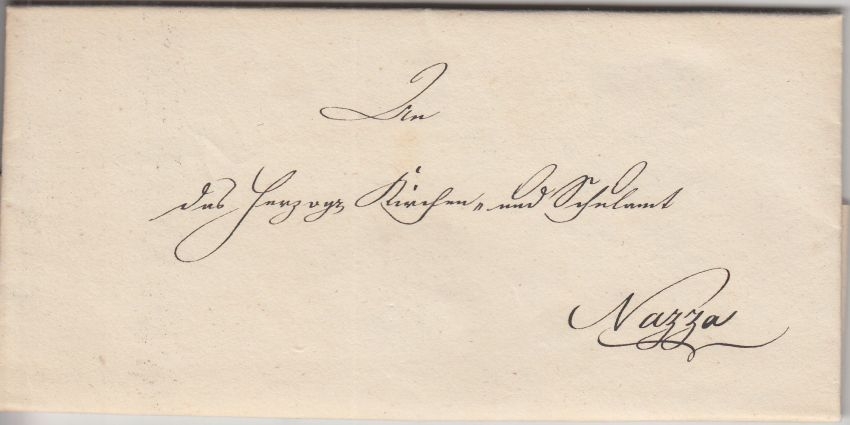 An
das Herzogl. Kirchen- und Schulamt
Nazza